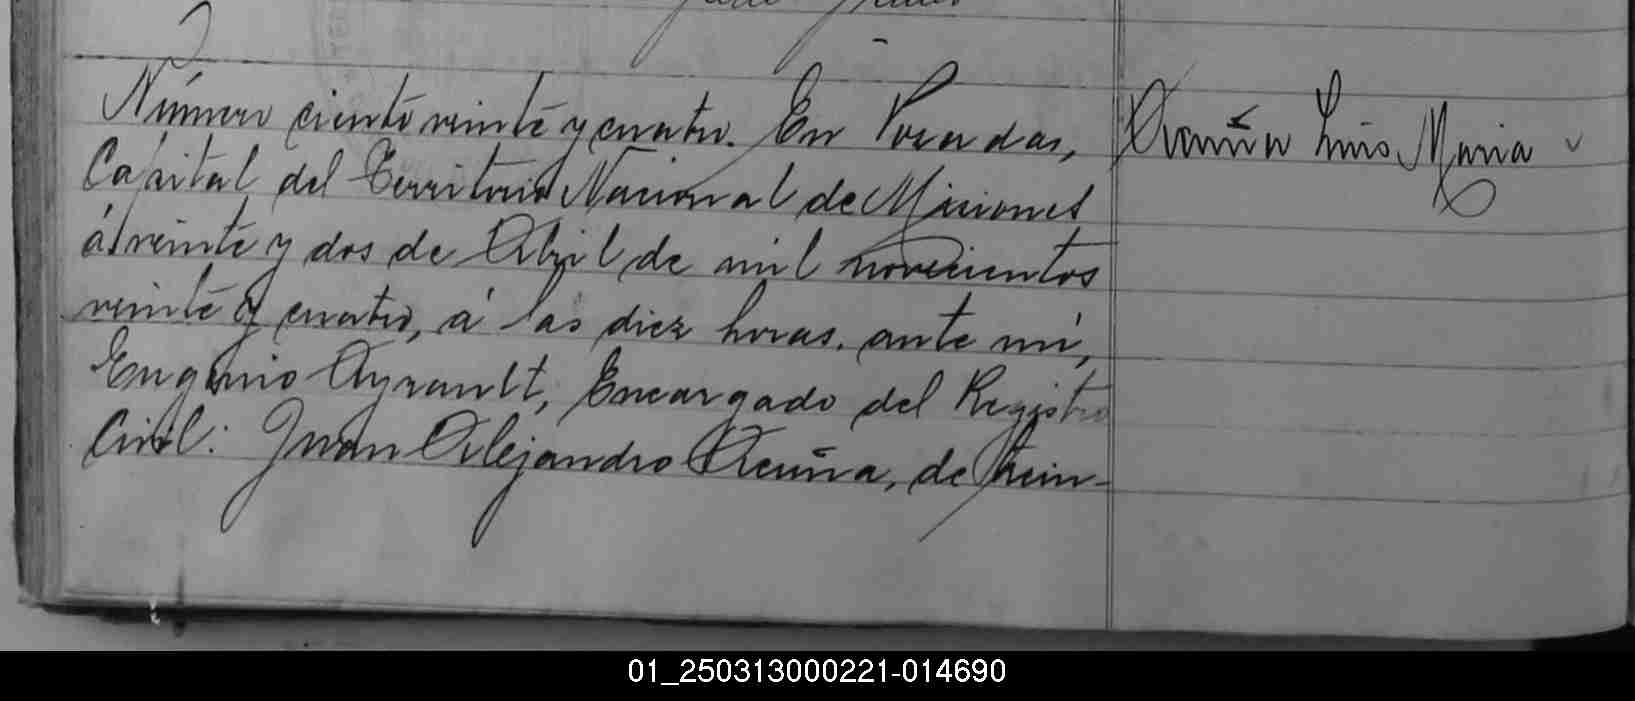 Número ciento veinte y cuatro. En Posadas,
Capital del Territorio Nacional de Misiones
á veinte y dos de Abril de mil novecientos
veinte y cuatro, á las diez horas, ante mí,
Eugenio Ayrault, Encargado del Registro
Civil: Juan Alejandro Acuña, de trein-
Acuña Luis Maria
01_250313000221-014690